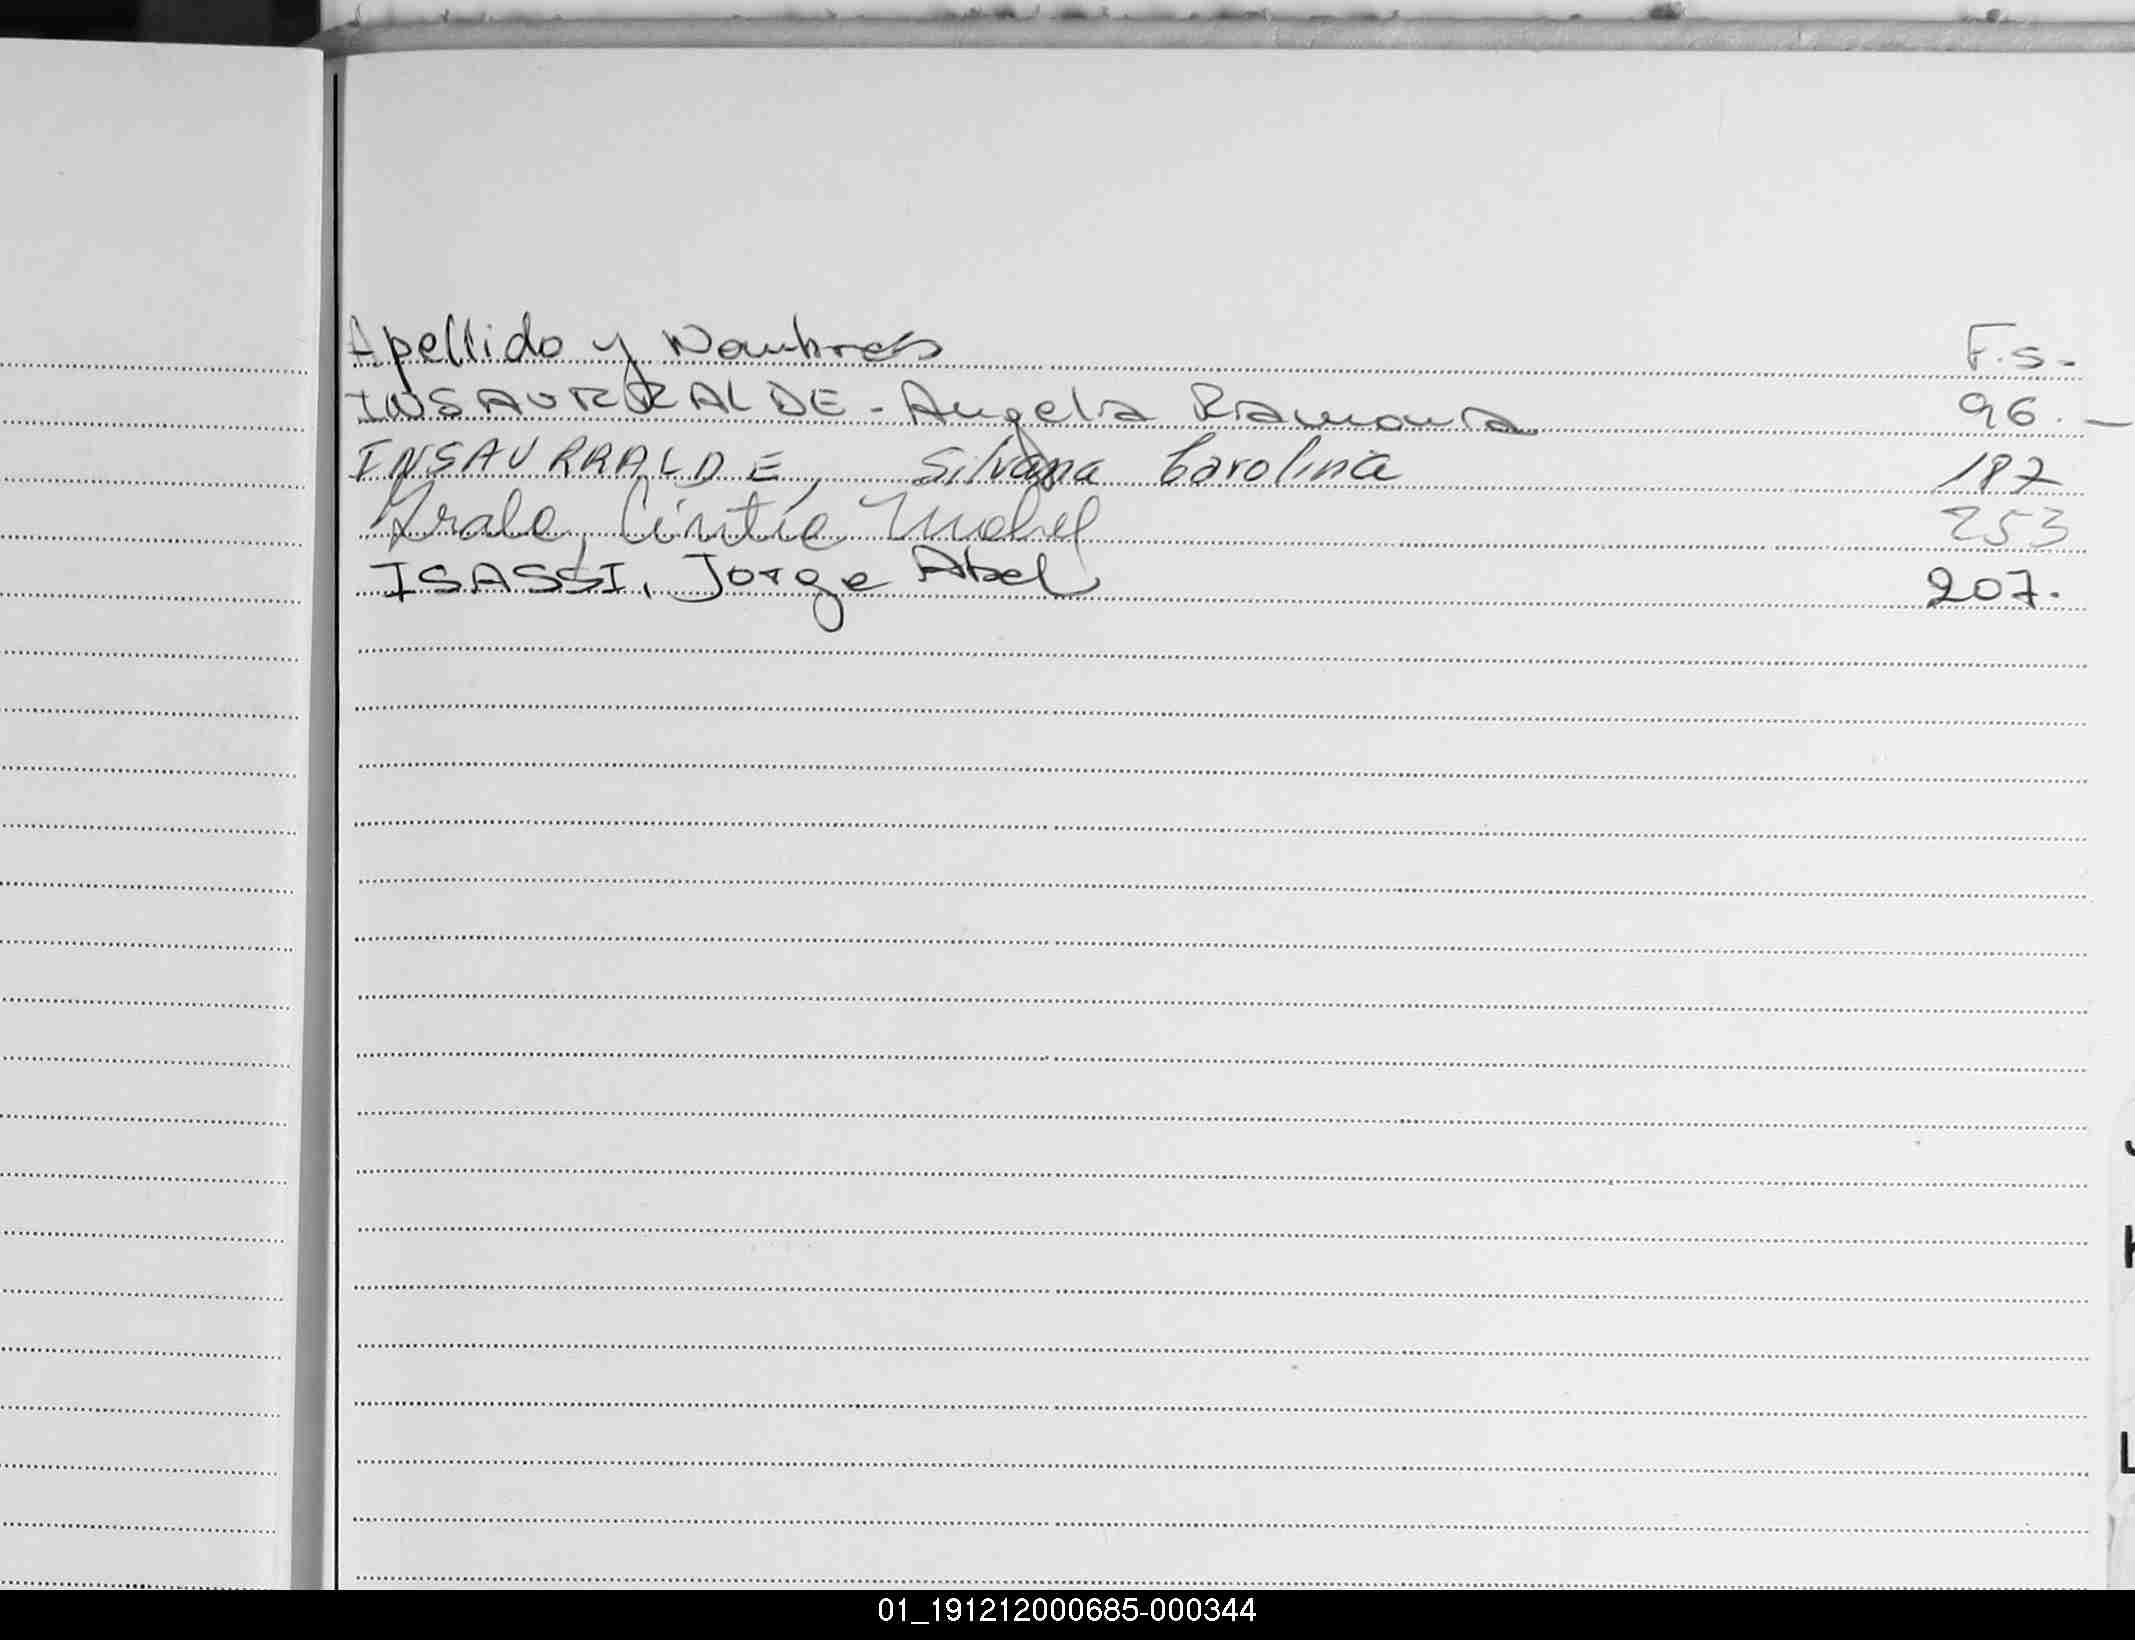 Apellido y Nombres F.s.-
INSAURRALDE - Angela Ramona 96.-
INSAURRALDE, Silvana Carolina 187
Irala, Cintia Mabel 253
ISASSI, Jorge Abel 207.
L
01_191212000685-000344